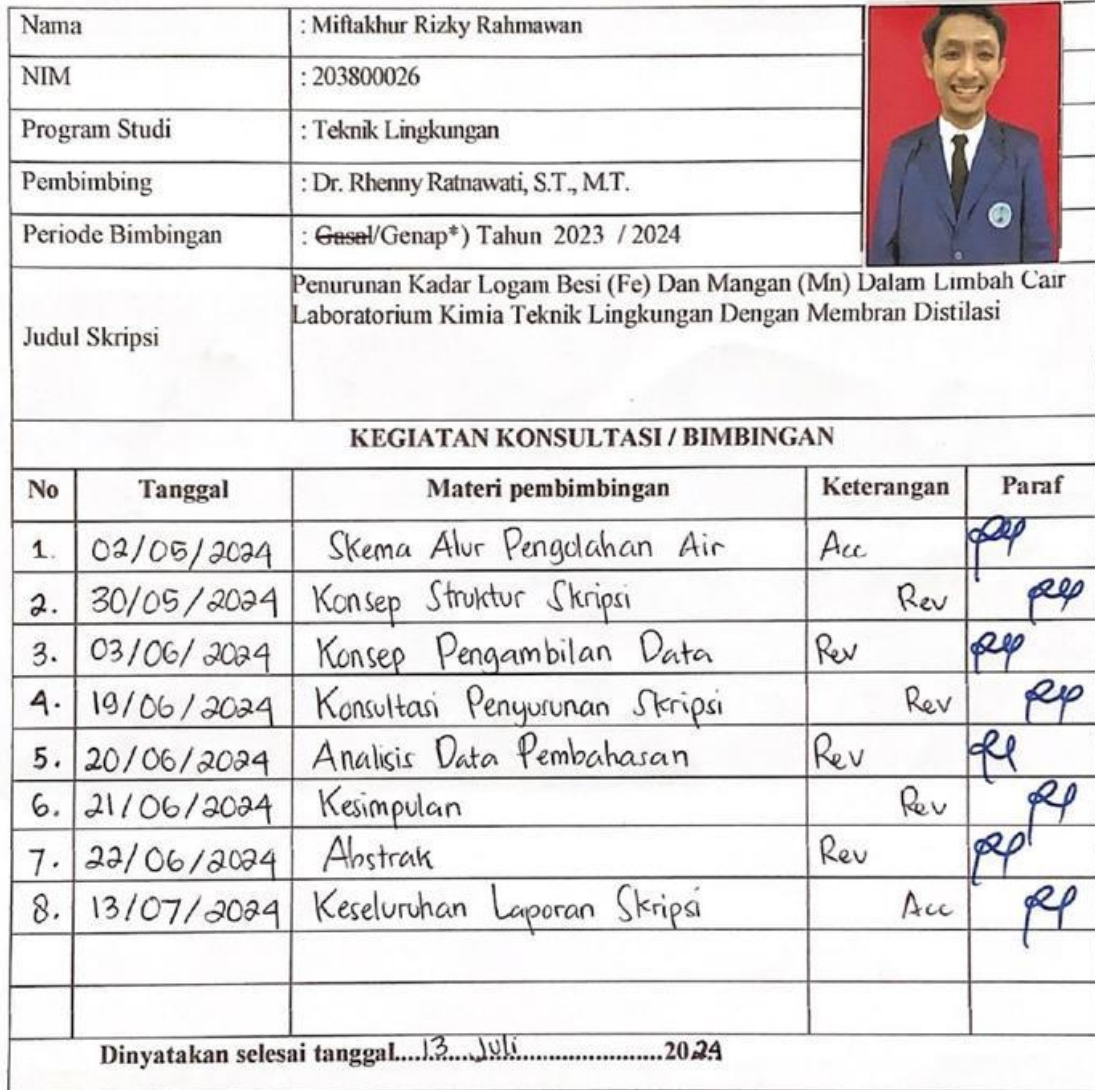 Nama : Miftakhur Rizky Rahmawan
NIM : 203800026
Program Studi : Teknik Lingkungan
Pembimbing : Dr. Rhenny Ratnawati, S.T., M.T.
Periode Bimbingan : Gasal/Genap*) Tahun 2023 / 2024
Judul Skripsi
Penurunan Kadar Logam Besi (Fe) Dan Mangan (Mn) Dalam Limbah Cair
Laboratorium Kimia Teknik Lingkungan Dengan Membran Distilasi
KEGIATAN KONSULTASI / BIMBINGAN
No Tanggal Materi pembimbingan Keterangan Paraf
1. 02/05/2024 Skema Alur Pengolahan Air Acc
2. 30/05/2024 Konsep Struktur Skripsi Rev
3. 03/06/2024 Konsep Pengambilan Data Rev
4. 19/06/2024 Konsultasi Penyusunan Skripsi Rev
5. 20/06/2024 Analisis Data Pembahasan Rev
6. 21/06/2024 Kesimpulan Rev
7. 22/06/2024 Abstrak Rev
8. 13/07/2024 Keseluruhan Laporan Skripsi Acc
Dinyatakan selesai tanggal....13....Juli........................2024